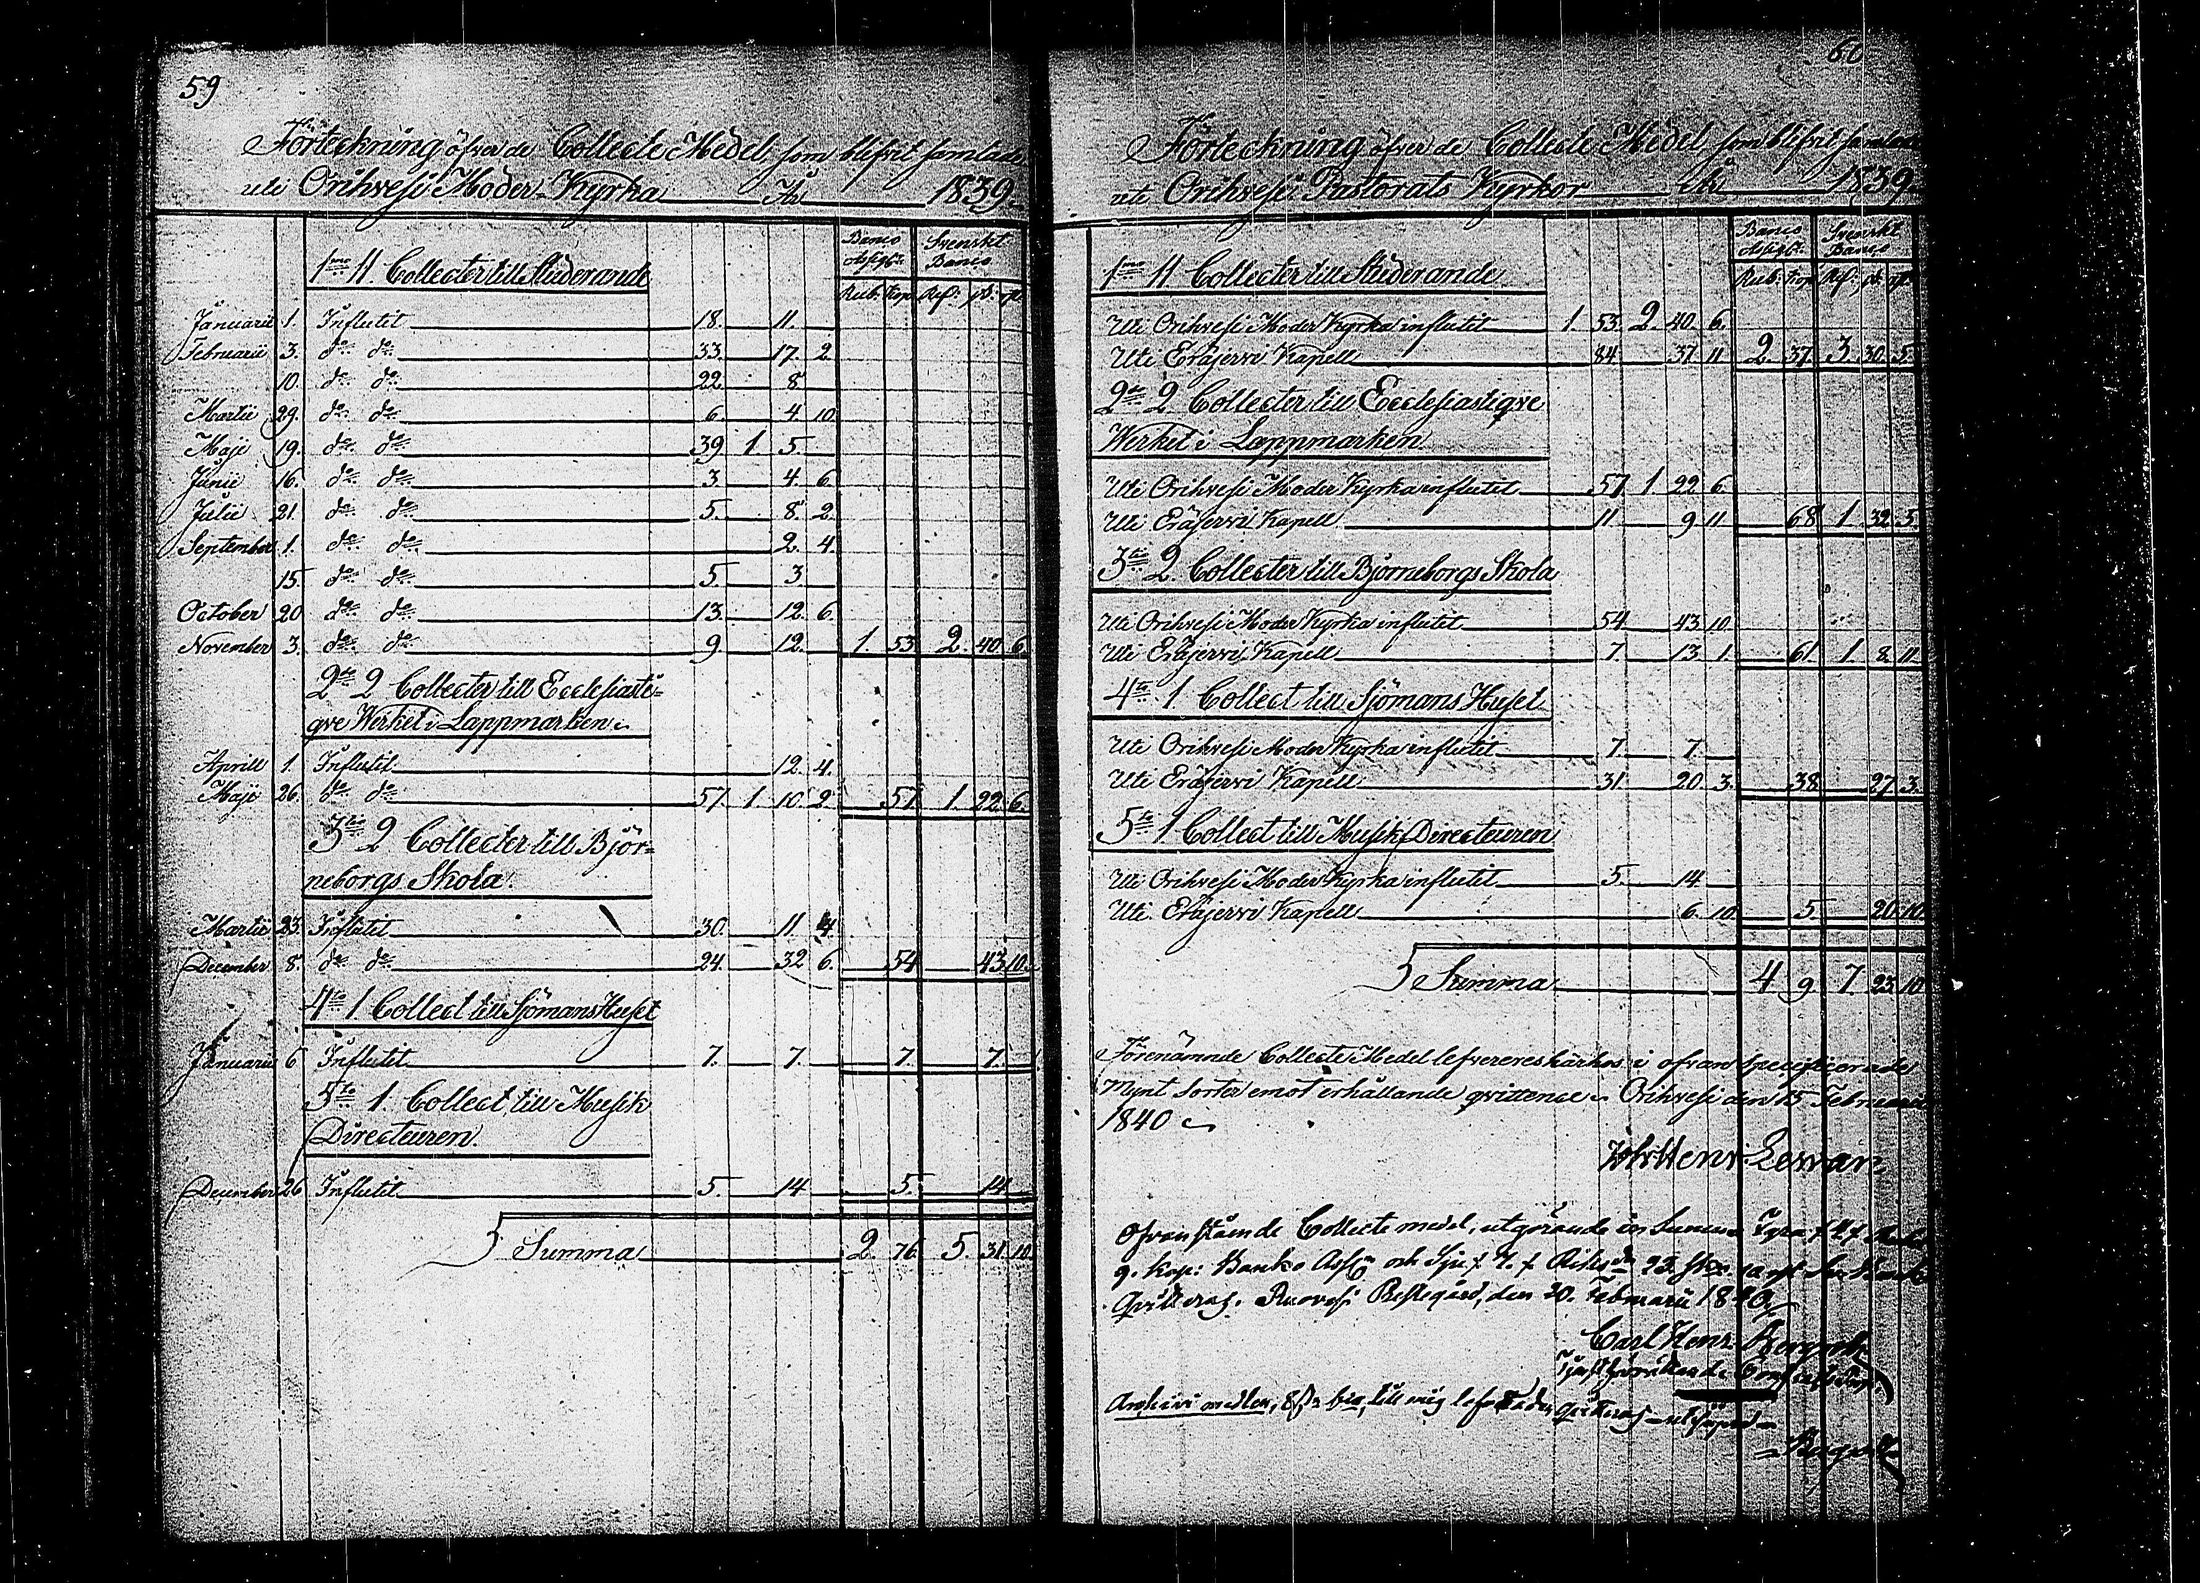 59
Förteckning öfver de Collecte Medel som blifvit samlade
uti Orihvesi Moder-Kyrka År 1839.
Banco Assigt: Svenskt Banco
1mo 11. Collecter till Studerande
Rub: kop: Rf: sk: rst
Januarii 1. Influtit 18. 11.
Februarii 3. do do 33. 17. 2
10. do do 22 8
Martii 29. do do 6. 4. 10.
Maji 19. do do 39 1 5.
Junii 16. do do 3 4. 6.
Julii 21. do do 5. 8. 2.
September 1. do do 2. 4.
15. do do 5 3
October 20 do do 13. 12. 6.
November 3. do do 9 12. 1. 53. 2. 40. 6.
2do 2 Collecter till Ecclesiasti-
qve Werket i Lappmarken
Aprill 1. Influtit 12. 4.
Maji 26. do do 57. 1 10. 2 57 1. 22. 6.
3tio 2 Collecter till Björ-
neborgs Skola.
Martii 23. Influtit 30. 11 4
December 8. do do 24. 32 6. 54 43. 10.
4to 1. Collect till Sjömans Huset
Januarii 6 Influtit 7. 7. 7. 7.
5to 1. Collect till Musik
Directeuren.
December 26 Influtit 5. 14 5. 14
Summa 2. 76. 5. 31. 10.
60
Förteckning öfver de Collecte Medel som blifvit samlade
uti Orihvesi Pastorats Kyrkor År 1839.
Banco Assigt: Svenskt Banco
1mo 11 Collecter till Studerande
Rub: kop: Rf: sk: rst
Uti Orihvesi Moder Kyrka influtit 1. 53. 2. 40. 6.
Uti Eräjervi Kapell 84 37. 11 2. 37. 3. 30. 5.
2do 2 Collecter till Ecclesiastiqve
Werket i Lappmarken.
Uti Orihvesi Moder Kyrka influtit 57. 1 22 6.
Uti Eräjervi Kapell 11 9 11. 68 1 32. 5
3tio 2 Collecter till Björneborgs Skola
Uti Orihvesi Moder Kyrka influtit 54 43. 10.
Uti Eräjervi Kapell 7. 13 1. 61. 1. 8. 11
4to 1 Collect till Sjömans Huset
Uti Orihvesi Moder Kyrka influtit 7. 7
Uti Eräjervi Kapell 31. 20. 3. 38 27. 3.
5to 1 Collect till Musik Directeuren
Uti Orihvesi Moder Kyrka influtit 5. 14
Uti Eräjervi Kapell 6. 10. 5 20. 10.
Summa 4 9 7. 23. 10
Förenämnde Collecte Medel lefvereres härhos i ofvan specificerade
Mynt sorter emot erhållande qvittence. Orihvesi den 15 Februarii
1840
Joh: Henr: Lewan
Ofvanstående Collecte medel, utgörande en Summa Fyra /4/ Rub:
9. kop: Banko Assig: och Sju /7./ Riksdr 23. sk:
Qvitteras. Ruovesi Prestegård, den 20. Februarii 1840
Carl Henr: Bergroth
Tjenstförrättande
Archivi medlen, till mig lefererade, qvitteras
Bergroth